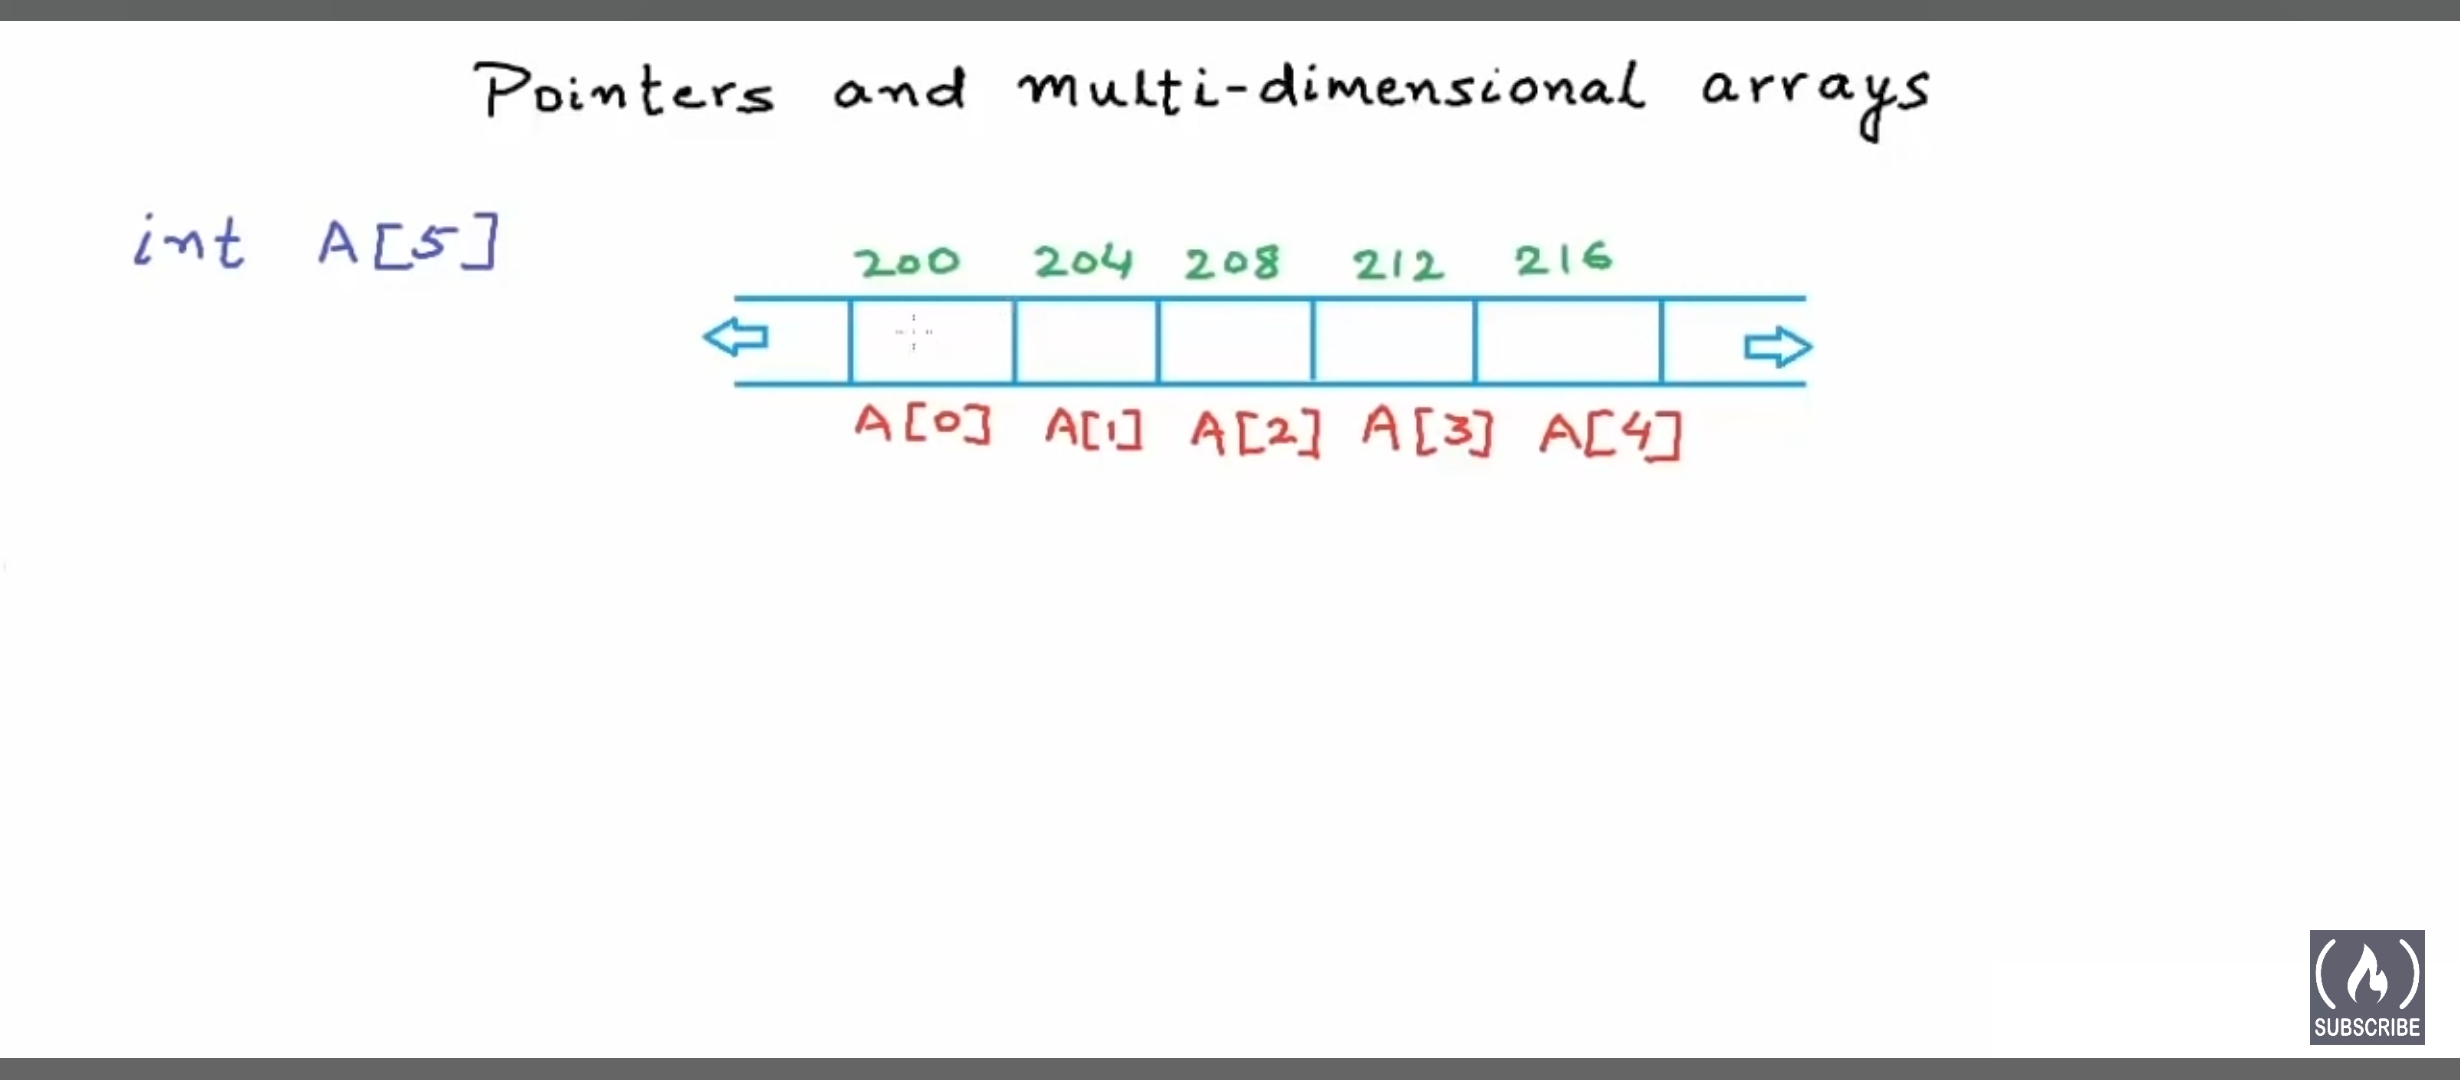 Pointers and multi-dimensional arrays
int A[5]
200 204 208 212 216
A[0] A[1] A[2] A[3] A[4]
SUBSCRIBE